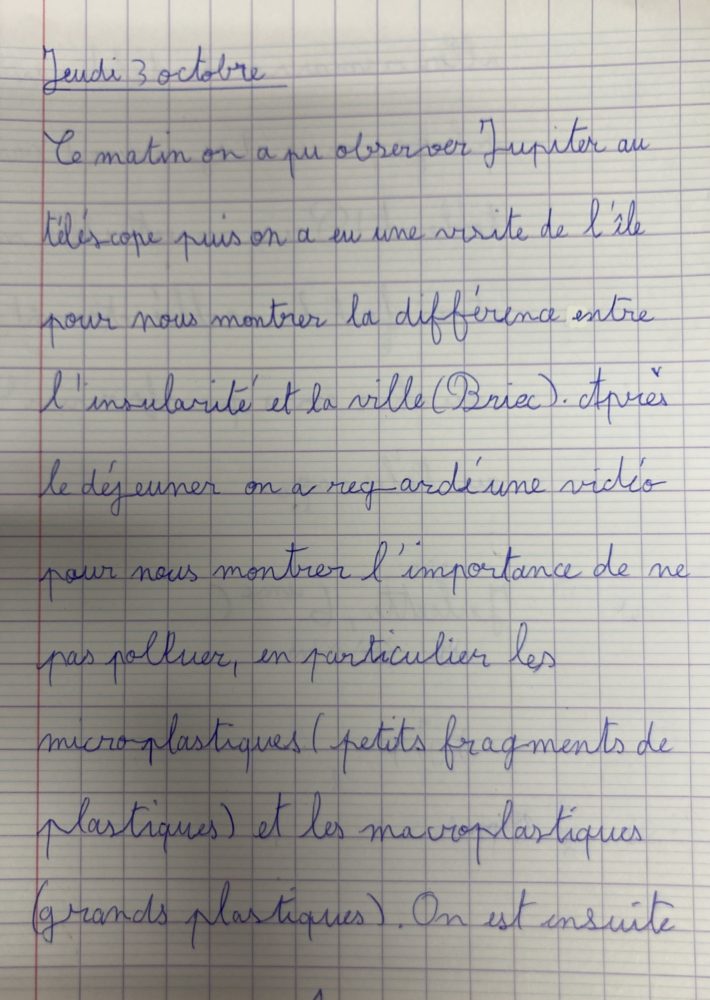 Jeudi 3 octobre
Ce matin on a pu observer Jupiter au
téléscope puis on a eu une visite de l'île
pour nous montrer la différence entre
l'insularité et la ville (Briec). Après
le déjeuner on a regardé une vidéo
pour nous montrer l'importance de ne
pas polluer, en particulier les
microplastiques (petits fragments de
plastiques) et les macroplastiques
(grands plastiques). On est ensuite